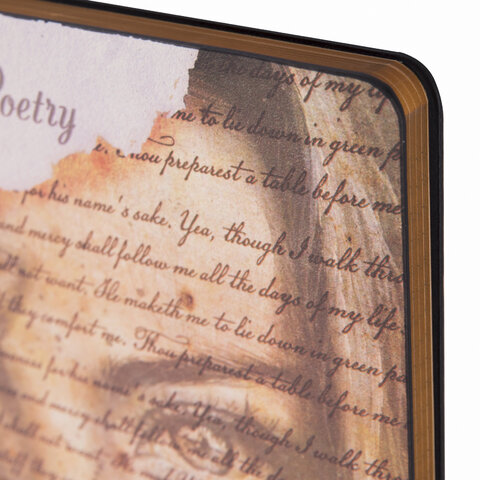 Poetry
the days of my life
me to lie down in green p
e. Thou preparest a table before me
for his name's sake. Yea, though I walk thro
and mercy shall follow me all the days of my life
ll not want. He maketh me to lie down in green pa
they comfort me. Thou preparest a table before me
for his name's sake. Yea, though I walk
and mercy shall follow me all the days of
not want. He
they comfort